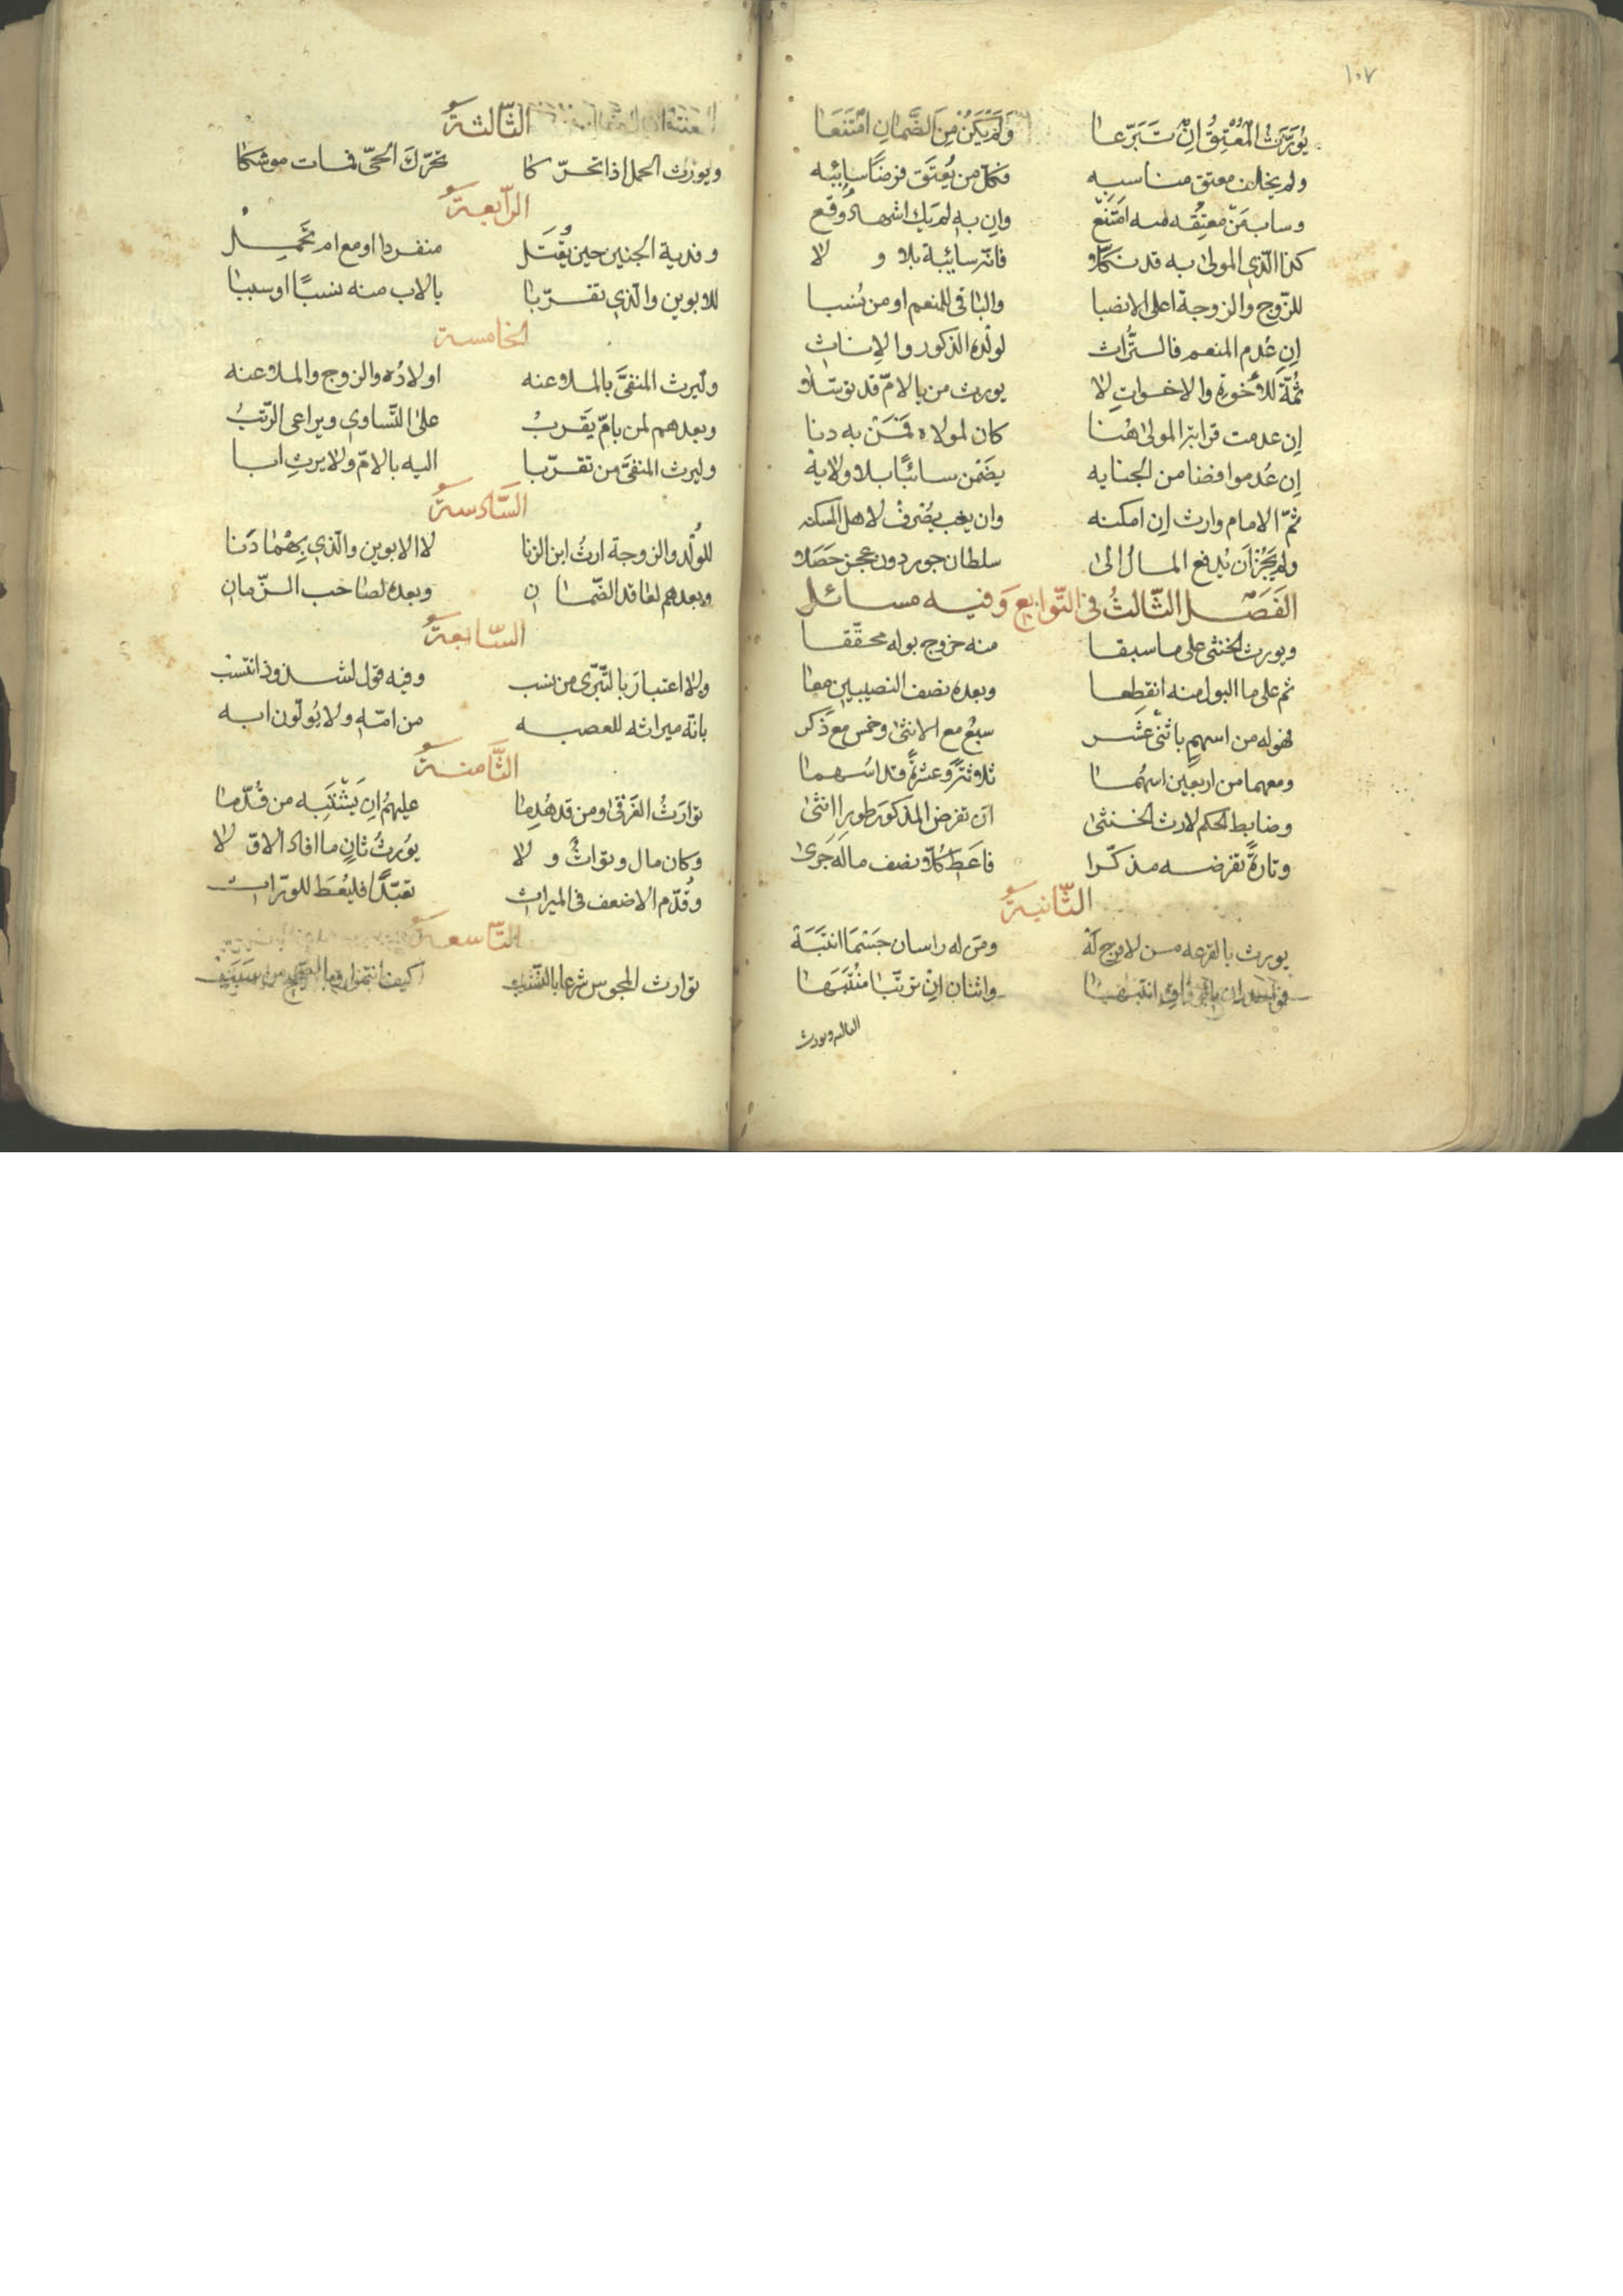 ١٠٧
يُوَرَّثُ الْمُعْتِقُ اِنْ تَبَرَّعَا وَلَمْ يَكُنْ مِنَ الضَّمَانِ امْتَنَعَا
ولم يخلف معتق مناسبه فكلّ من يُعتَق فرضًا سايبه
وساب مَن معتِقُه منه امتَنَع وان به لم يك اشهاد وقع
كذا الّذي المولى به قد نكّلا فانّه سايبة بلا ولا
للزّوج والزوجة اعلى الانصبا والباقي للمنعم او من نُسبا
اِن عُدم المنعم فالتُّراث لولْده الذكور والاناث
ثُمّة للاُخوة والاخوات لا يورث من بالامّ قد توسّلا
اِن عدمت قرابة المولى هُنا كان لمولاه فمَن به دنا
اِن عُدموا فضامن الجنايه يضمن سائبًا بلا ولاية
ثمّ الامام وارث اِن امكنه وان يغب يُصْرف لاهل المسكنه
ولم يَجُز اَن يُدفع المالُ الى سلطان جور دون عجز حَصَلا
الفَصْل الثّالثُ في التّوابع وَفيه مسائل
ويورث الخنثى على ما سبقا منه خروج بوله محقّقا
ثم على ما البول منه انقطعا وبعده نصف النصيبين معا
فهو له من اسهمٍ باثنى عَشَر سبعٌ مع الانثى وخمس مع ذَكَر
ومعهما من اربعين اسهُما ثلاثةً وعشرةً قد اسُهما
وضابط الحكم لارث الخنثى اَن تفرض المذكور طورا انثى
وتارةً تفرضه مذكّرا فاَعطِ كُلاّ نصف ماله جَرى
الثّانية
يورث بالقرعه من لا فرج لَهْ ومَن له راسان جَسْمًا انتَبَهْ
فواحد ان واثنان اِنْ ترتّبا مُنْتَبَها
العاليه ويورث
الثّالثة
ويورَث الحمل اذا تحرّكا تحرّكَ الحيّ فمات موشكا
الرّابعة
وفدية الجنين حين يُقْتَل منفردا او مع ام تحْمِل
للابوين والّذي تقرّبا بالاب منه نسبًا او سببا
الخامسة
وليرث المنفىَّ بالملاعنه اولادُه والزوج والملاعنه
وبعدهم لمن بامّ يَقربُ على التّساوي ويراعى الرّتبُ
وليرث المنفىَّ من تقرّبا اليه بالامّ ولا يرث ابا
السّادسة
للوُلْد والزوجة ارثُ ابن الزنا لا الابوين والّذي بِهمُا دَنا
وبعدهم لعاقد الضّمان وبعده لصاحب الزّمان
السّابعة
ولا اعتبارَ بالتّبرّى من نسب وفيه قول لشذوذ انتسب
بانّه ميراثه للعصبه من امّه ولا يُولّون ابه
الثّامنة
توارَثُ الغَرقى ومن قد هُدِما عليهمُ اِن يَشْتَبِه من قُدّما
وكان مال وتوارث ولا يوُرثُ ثانٍ ما افاد الاوّلا
وقُدّم الاضعف في الميراث تعبّدًا فليُعْطَ للورّاث
التّاسعة
توارث المجوس شرعا بالنّسب كيف انتمو